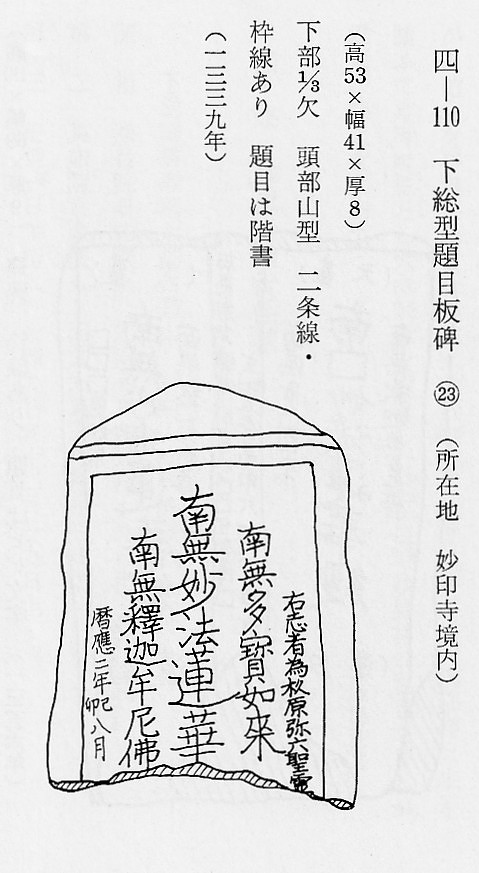 四―110　下総型題目板碑　㉓　（所在地　妙印寺境内）
（高53×幅41×厚8）
下部⅓欠　頭部山型　二条線・
枠線あり　題目は階書
（一三三九年）
右志者為杦原弥六聖霊
南無多寳如来
南無妙法蓮華
南無釋迦牟尼佛
暦應二年己卯八月